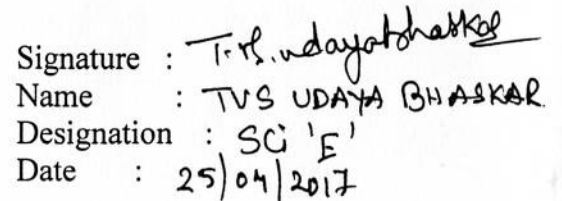 Signature : T.V.S. udayabhaskar
Name : TVS UDAYA BHASKAR
Designation : SCi 'E'
Date : 25/04/2017